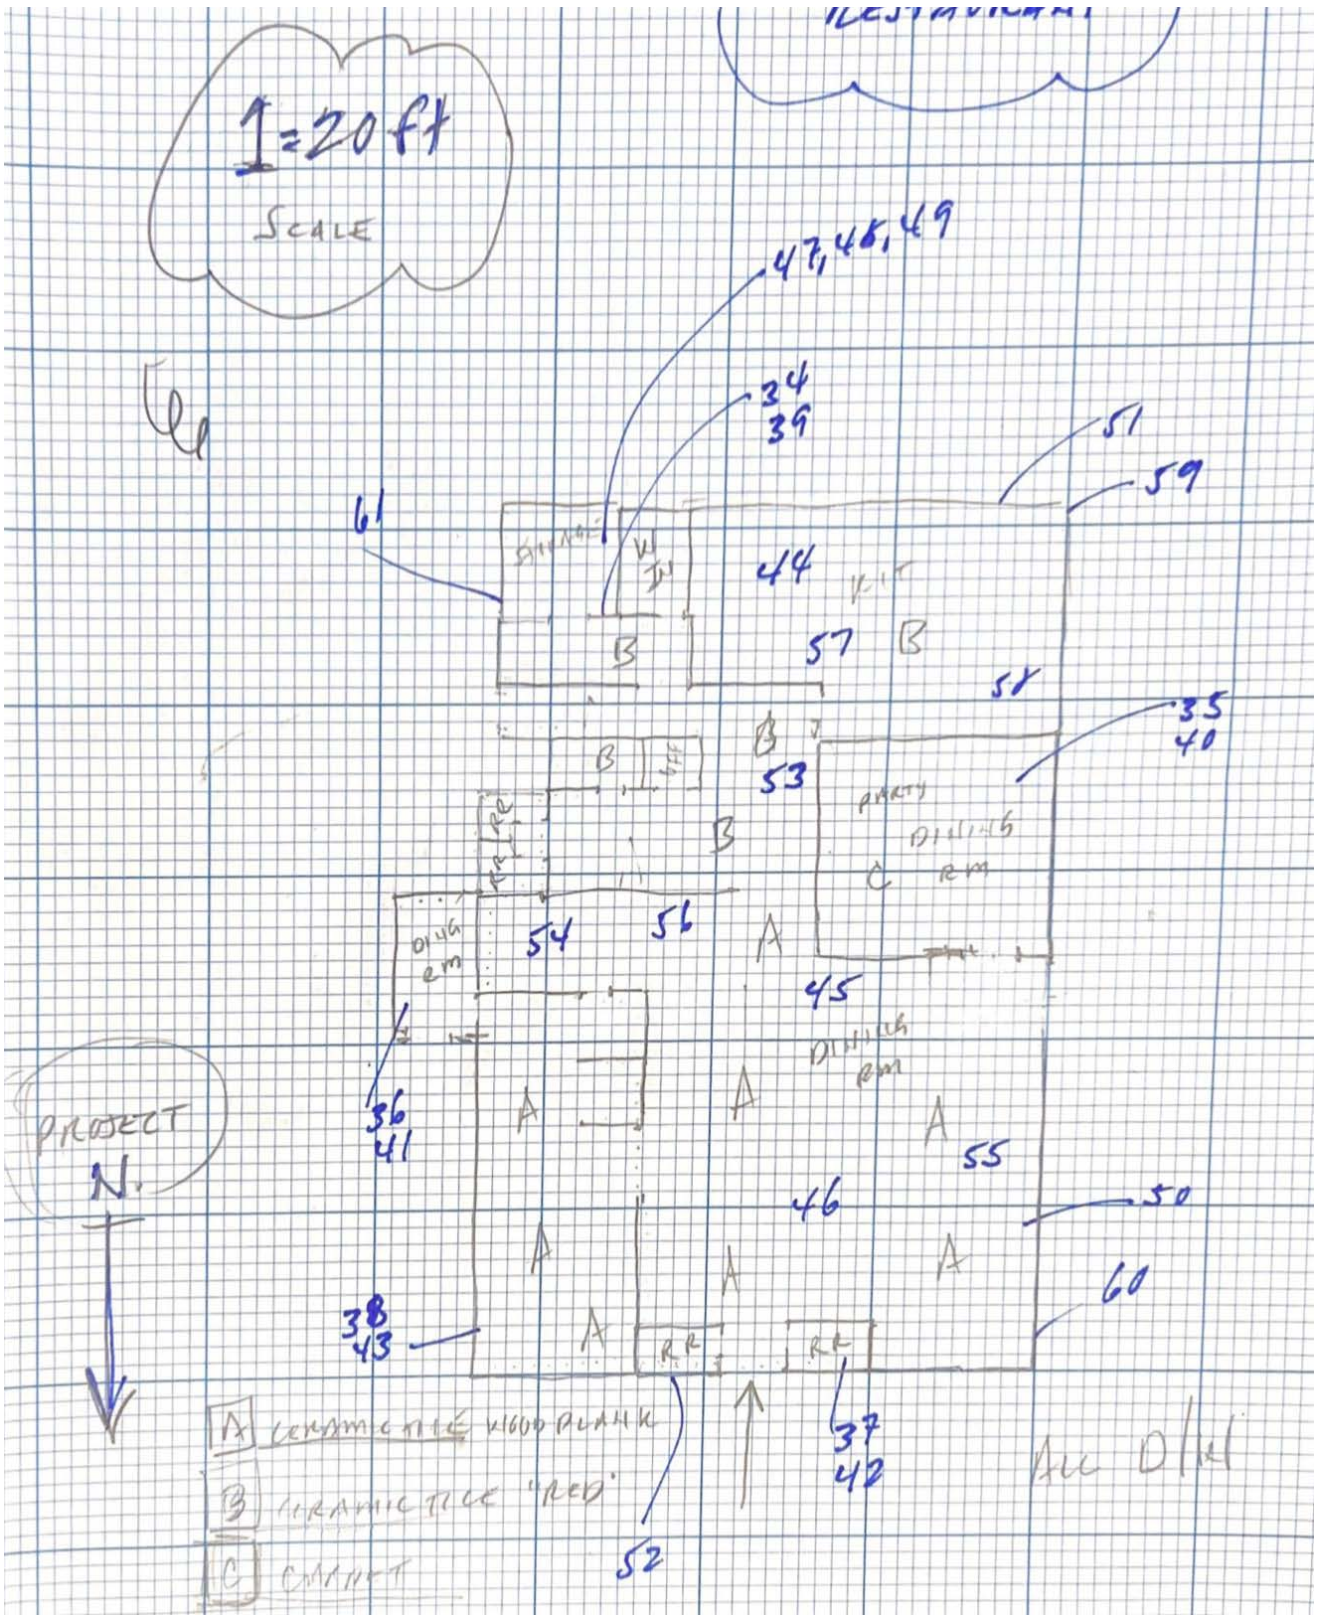 RESTAURANT
1=20 ft
SCALE
47, 48, 49
34
39
51
59
61
STORAGE
W
IN
44
KIT
B
57
B
58
35
40
B
53
B
OFF
PARTY
DINING
RM
C
RR
RR
B
DING
RM
54
56
A
45
DINING
RM
36
41
A
A
A
55
PROJECT
N.
46
50
A
A
A
60
38
43
A
RR
RR
37
42
52
A CERAMIC TILE WOOD PLANK
B CERAMIC TILE "RED"
C CARPET
ALL D/W